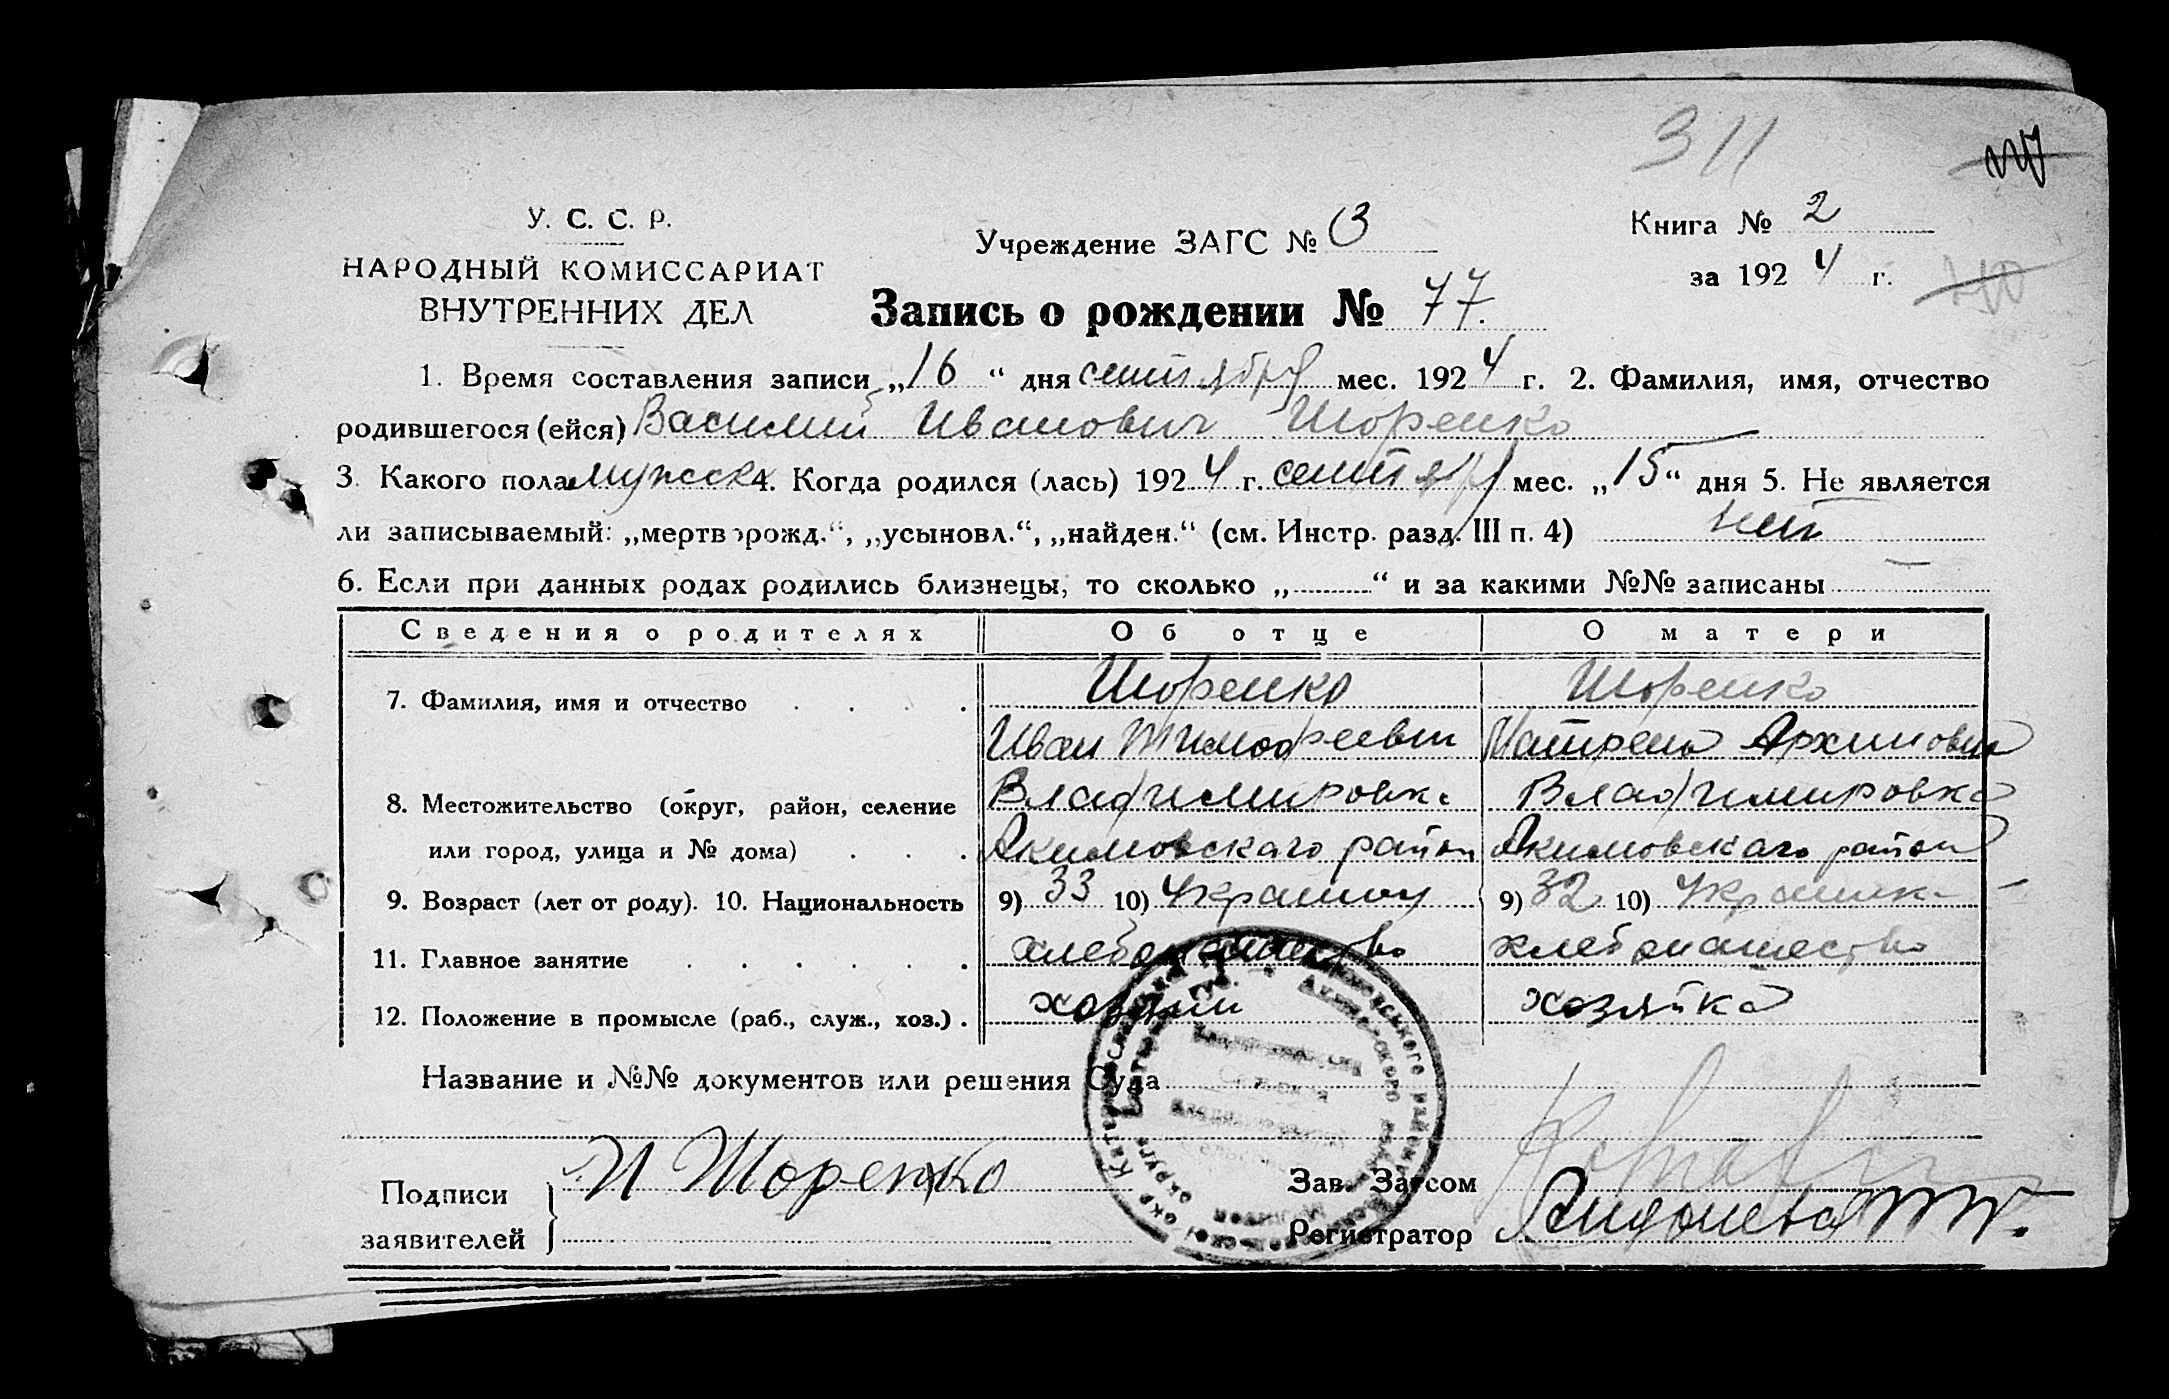 311
У. С. С. Р.
НАРОДНЫЙ КОМИССАРИАТ
ВНУТРЕННИХ ДЕЛ
Учреждение ЗАГС № 3
Книга № 2
за 1924 г.
Запись о рождении № 77.
1. Время составления записи „16“ дня сентября мес. 1924 г. 2. Фамилия, имя, отчество
родившегося (ейся) Василий Иванович Шоренко
3. Какого пола мужск 4. Когда родился (лась) 1924 г. сентября мес. „15“ дня 5. Не является
ли записываемый: „мертворожд.“, „усыновл.“, „найден.“ (см. Инстр. разд. III п. 4) нет
6. Если при данных родах родились близнецы, то сколько „..........“ и за какими №№ записаны
Сведения о родителях Об отце О матери
7. Фамилия, имя и отчество Шоренко Шоренко
Иван Тимофеевич Матрена Архиповна
8. Местожительство (округ, район, селение Владимировка Владимировка
или город, улица и № дома) Акимовскаго района Акимовскаго района
9. Возраст (лет от роду). 10. Национальность 9) 33 10) Украинец 9) 32 10) Украинка
11. Главное занятие хлебопашество хлебопашество
12. Положение в промысле (раб., служ., хоз.) хозяин хозяйка
Название и №№ документов или решения Суда
Подписи
заявителей
И Шоренко
Зав. Загсом
Регистратор